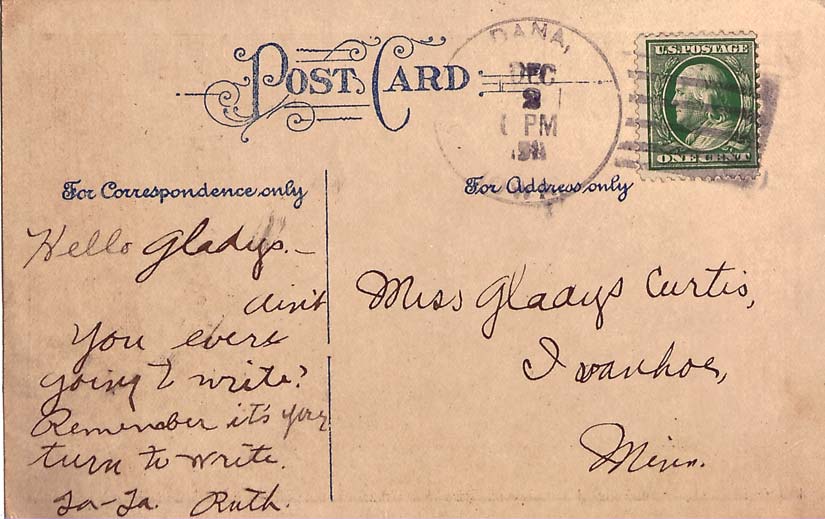 POST CARD
DANA,
DEC
2
PM
U.S. POSTAGE
ONE CENT
For Correspondence only
For Address only
Hello Gladys.—
aint
You evere
going to write?
Remember it's your
turn to write.
Ta-Ta. Ruth.
Miss Gladys Curtis,
Ivanhoe,
Minn.